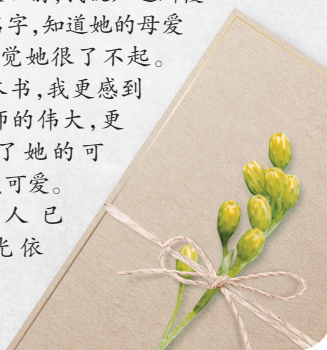 名字,知道她的母爱
觉她很了不起。
本书,我更感到
师的伟大,更
了她的可
可爱。
人已
光依